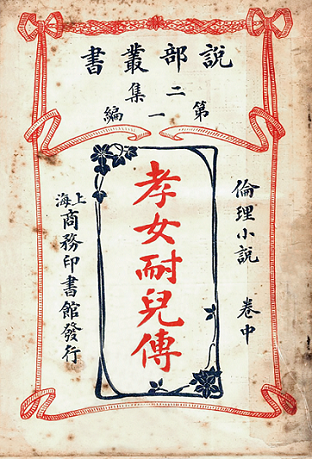 說部叢書
第二集一編
倫理小說 卷中
孝女耐兒傳
上海商務印書館發行